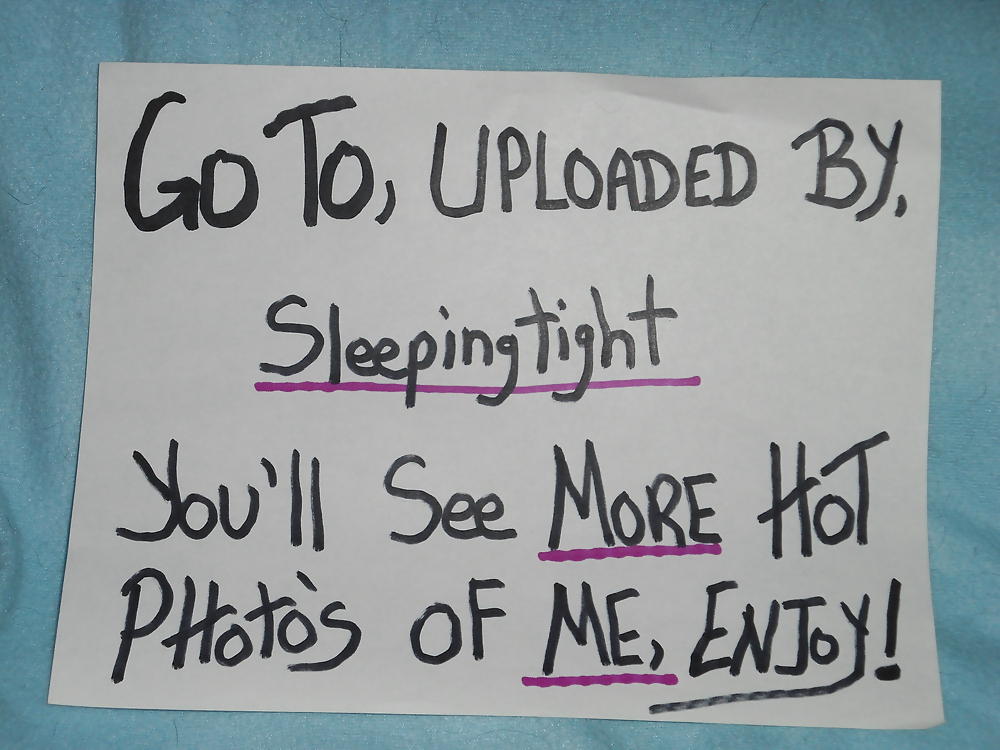 Go To, UPLOADED BY.
Sleepingtight
You'll See MORE HOT
PHoto's oF ME, ENJoy!